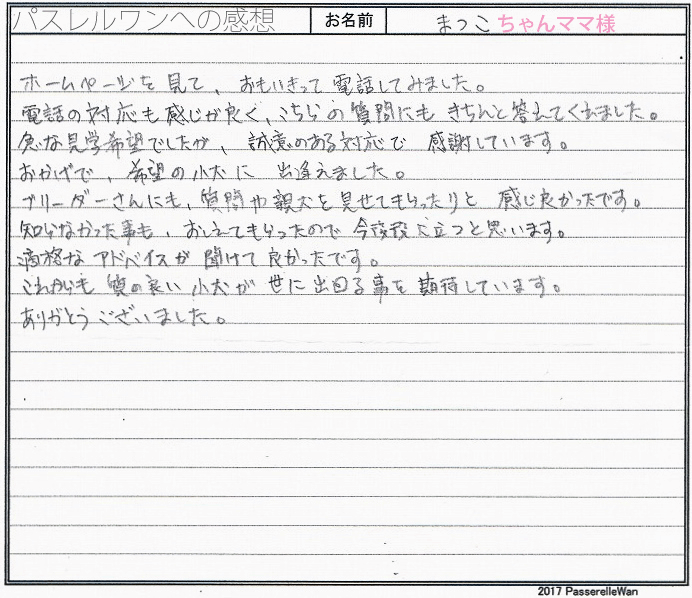 パスレルワンへの感想 お名前 まっこちゃんママ様
ホームページを見て、おもいきって電話してみました。
電話の対応も感じが良く、こちらの質問にもきちんと答えてくれました。
急な見学希望でしたが、誠意のある対応で感謝しています。
おかげで、希望の小犬に出逢えました。
ブリーダーさんにも、質問や親犬を見せてもらったりと感じ良かったです。
知らなかった事も、おしえてもらったので今後役に立つと思います。
適格なアドバイスが聞けて良かったです。
これからも質の良い小犬が世に出回る事を期待しています。
ありがとうございました。
2017 PasserelleWan